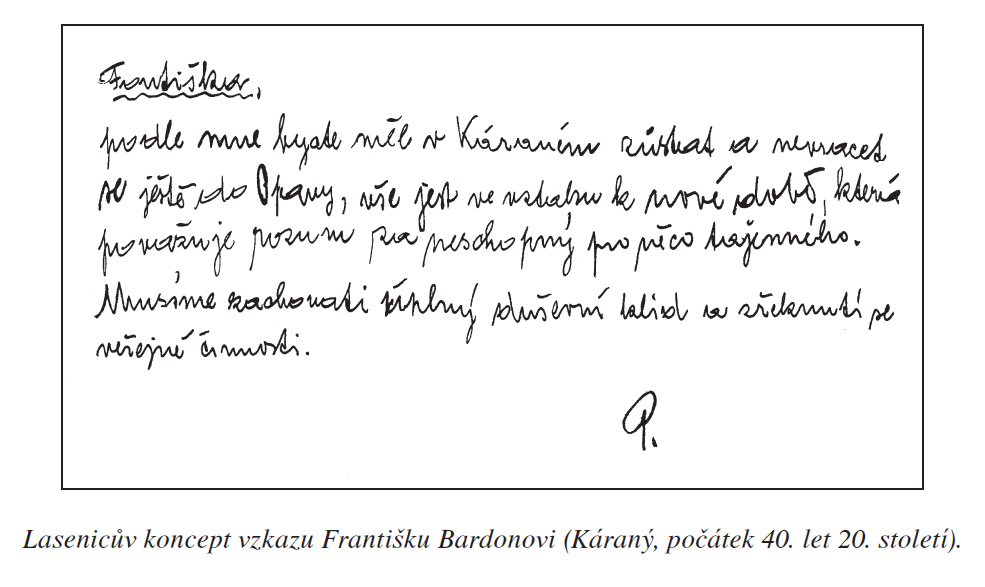 Františku,
podle mne byste měl v Káraném zůstat a nevracet
se ještě do Opavy, vše jest ve vztahu k nové době, která
považuje rozum za neschopný pro něco tajemného.
Musíme zachovati úplný duševní klid a zřeknutí se
veřejné činnosti.
P.
Lasenicův koncept vzkazu Františku Bardonovi (Káraný, počátek 40. let 20. století).